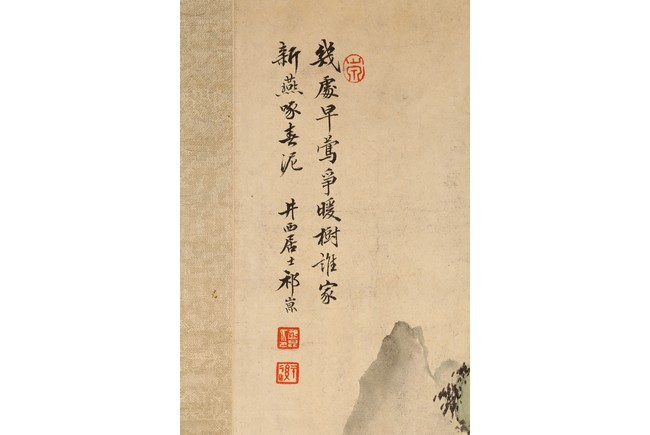 幾處早鶯爭暖樹誰家
新燕啄春泥 井西居士祁崇
崇